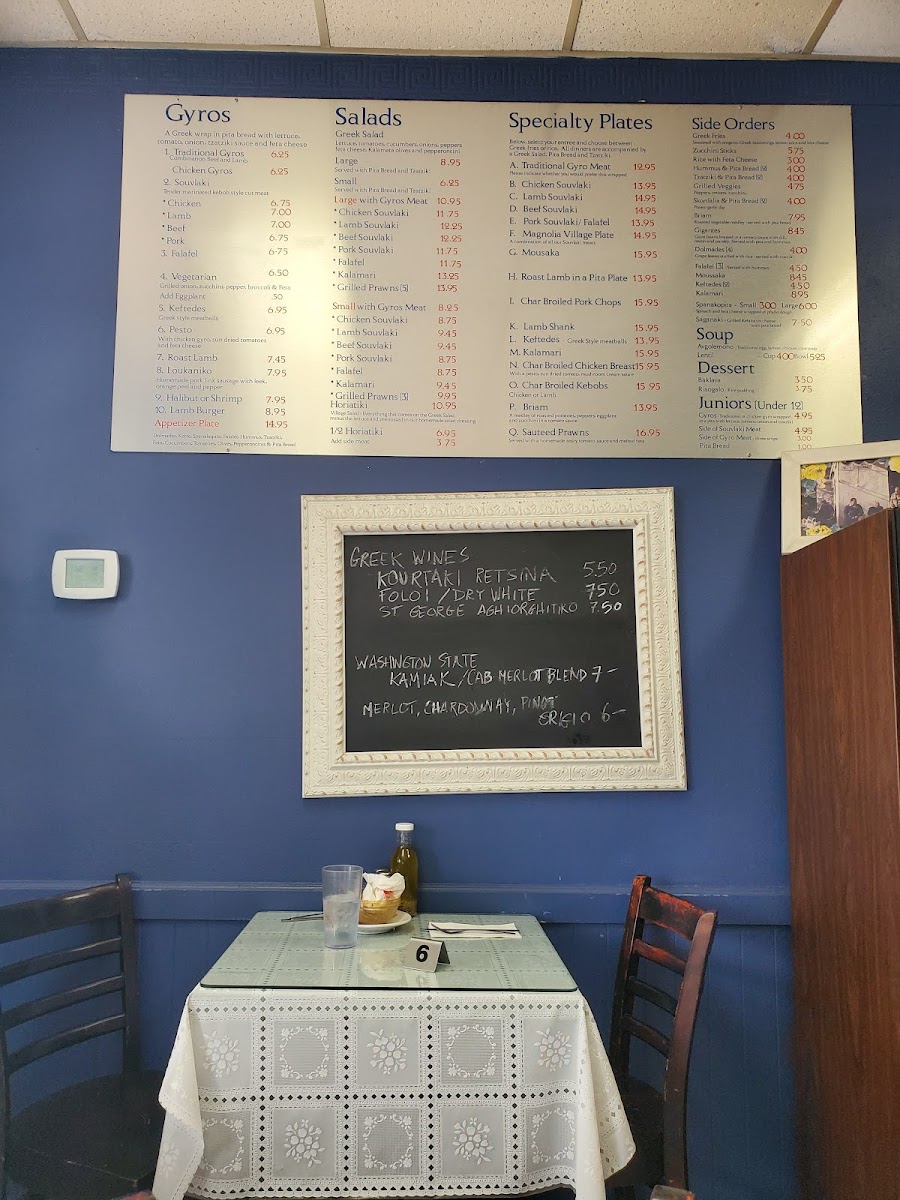 Gyros
A Greek wrap in pita bread with lettuce,
tomato, onion, tzatziki sauce and feta cheese
1. Traditional Gyros 6.25
Combination Beef and Lamb
Chicken Gyros 6.25
2. Souvlaki
Tender marinated kebob style cut meat
* Chicken 6.75
* Lamb 7.00
* Beef 7.00
* Pork 6.75
3. Falafel 6.75
4. Vegetarian 6.50
Grilled onion, zucchini, pepper, broccoli & Feta
Add Eggplant .50
5. Keftedes 6.95
Greek style meatballs
6. Pesto 6.95
With chicken gyro, sun dried tomatoes
and feta cheese
7. Roast Lamb 7.45
8. Loukaniko 7.95
Homemade pork link sausage with leek,
orange peel and pepper
9. Halibut or Shrimp 7.95
10. Lamb Burger 8.95
Appetizer Plate 14.95
Salads
Greek Salad
Lettuce, tomatoes, cucumbers, onions, peppers
feta cheese, Kalamata olives and pepperoncini
Large 8.95
Served with Pita Bread and Tzatziki
Small 6.25
Served with Pita Bread and Tzatziki
Large with Gyros Meat 10.95
* Chicken Souvlaki 11.75
* Lamb Souvlaki 12.25
* Beef Souvlaki 12.25
* Pork Souvlaki 11.75
* Falafel 11.75
* Kalamari 13.25
* Grilled Prawns (5) 13.95
Small with Gyros Meat 8.25
* Chicken Souvlaki 8.75
* Lamb Souvlaki 9.45
* Beef Souvlaki 9.45
* Pork Souvlaki 8.75
* Falafel 8.75
* Kalamari 9.45
* Grilled Prawns (3) 9.95
Horiatiki 10.95
1/2 Horiatiki 6.95
Add side meat 3.75
Specialty Plates
Below, select your entree and choose between
Greek fries or rice. All dinners are accompanied by
a Greek Salad, Pita Bread and Tzatziki
A. Traditional Gyro Meat 12.95
B. Chicken Souvlaki 13.95
C. Lamb Souvlaki 14.95
D. Beef Souvlaki 14.95
E. Pork Souvlaki/Falafel 13.95
F. Magnolia Village Plate 14.95
A combination of all our Souvlaki meats
G. Mousaka 14.95
H. Roast Lamb in a Pita Plate 13.95
I. Char Broiled Pork Chops 15.95
K. Lamb Shank 15.95
L. Keftedes - Greek Style meatballs 13.95
M. Kalamari 15.95
N. Char Broiled Chicken Breast 15.95
O. Char Broiled Kebobs 15.95
Chicken or Lamb
P. Briam 13.95
Q. Sauteed Prawns 16.95
Side Orders
Greek Fries 4.00
Zucchini Sticks 5.75
Rice with Feta Cheese 3.00
Hummus & Pita Bread (2) 4.00
Tzatziki & Pita Bread (2) 4.00
Grilled Veggies 4.75
Skordalia & Pita Bread (2) 4.00
Briam 7.95
Gigantes 8.45
Dolmades (4) 4.00
Falafel (3) 4.50
Moussaka 8.45
Keftedes (2) 4.50
Kalamari 8.95
Spanakopita - Small 3.00 Large 6.00
Saganaki 7.50
Soup
Avgolemono
Lentil - Cup 4.00 Bowl 5.25
Dessert
Baklava 3.50
Rizogalo 3.75
Juniors (Under 12)
Gyros 4.95
Side of Souvlaki Meat 4.95
Side of Gyro Meat 3.00
Pita Bread 1.00
GREEK WINES
KOURTAKI RETSINA 5.50
FOLOI / DRY WHITE 7.50
ST GEORGE AGHIORGHITIKO 7.50
WASHINGTON STATE
KAMIAK/CAB MERLOT BLEND 7-
MERLOT, CHARDONNAY, PINOT
GRIGIO 6-
6